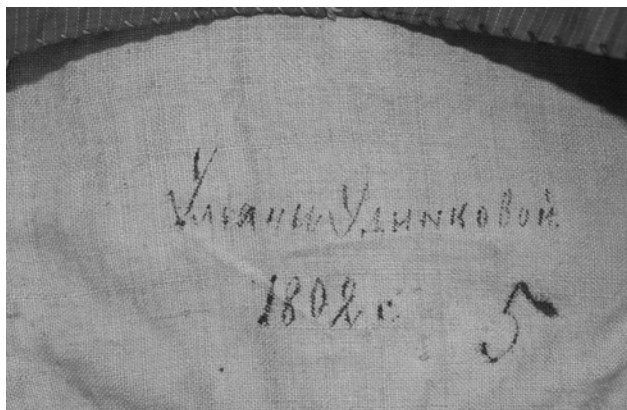 Ульяны Удинковой
1802 г 5